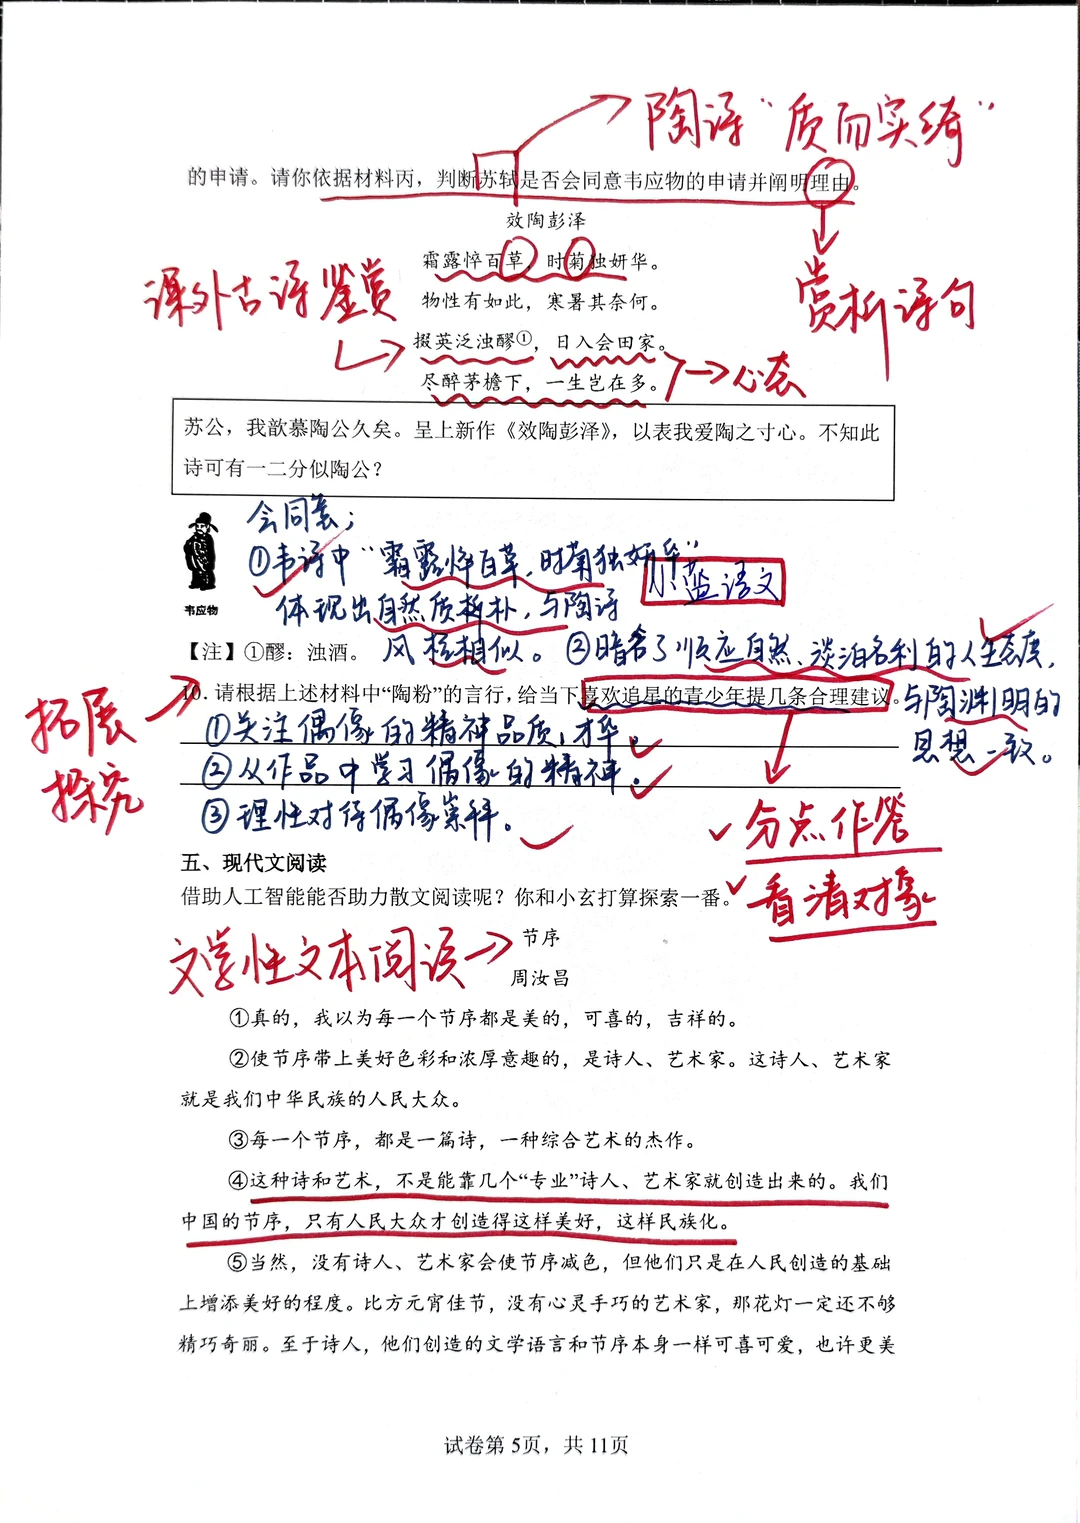 陶诗“质而实绮”
的申请。请你依据材料丙，判断苏轼是否会同意韦应物的申请并阐明理由。
效陶彭泽
霜露悴百草，时菊独妍华。
课外古诗鉴赏
物性有如此，寒暑其奈何。
赏析诗句
掇英泛浊醪①，日入会田家。
尽醉茅檐下，一生岂在多。
心态
苏公，我歆慕陶公久矣。呈上新作《效陶彭泽》，以表我爱陶之寸心。不知此
诗可有一二分似陶公？
会同意；
①韦诗中“霜露悴百草，时菊独妍华”
小蓝语文
体现出自然质朴，与陶诗
韦应物
【注】①醪：浊酒。
风格相似。②暗含了顺应自然、淡泊名利的人生态度，
10．请根据上述材料中“陶粉”的言行，给当下喜欢追星的青少年提几条合理建议。
与陶渊明的
思想一致。
拓展
探究
①关注偶像的精神品质，才华。
②从作品中学习偶像的精神。
③理性对待偶像崇拜。
分点作答
看清对象
五、现代文阅读
借助人工智能能否助力散文阅读呢？你和小玄打算探索一番。
文学性文本阅读
节序
周汝昌
①真的，我以为每一个节序都是美的，可喜的，吉祥的。
②使节序带上美好色彩和浓厚意趣的，是诗人、艺术家。这诗人、艺术家
就是我们中华民族的人民大众。
③每一个节序，都是一篇诗，一种综合艺术的杰作。
④这种诗和艺术，不是能靠几个“专业”诗人、艺术家就创造出来的。我们
中国的节序，只有人民大众才创造得这样美好，这样民族化。
⑤当然，没有诗人、艺术家会使节序减色，但他们只是在人民创造的基础
上增添美好的程度。比方元宵佳节，没有心灵手巧的艺术家，那花灯一定还不够
精巧奇丽。至于诗人，他们创造的文学语言和节序本身一样可喜可爱，也许更美
试卷第 5页，共 11页